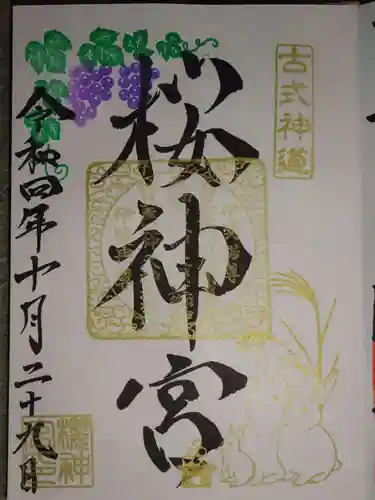 古式神道
桜神宮
令和四年十月二十九日
桜神
宮印